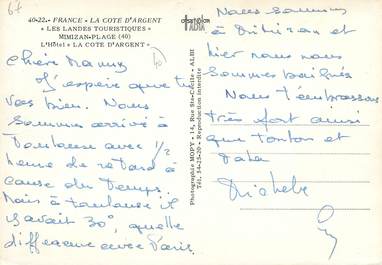 67
40-22. - FRANCE - LA COTE D'ARGENT
« LES LANDES TOURISTIQUES »
MIMIZAN-PLAGE (40)
L'Hôtel « LA COTE D'ARGENT »
Chère Mamy
J'espère que tu
vas bien. Nous
sommes arrivé à
Toulouse avec 1/2
heure de retard à
cause du temps.
Mais à toulouse il
y avait 30°, quelle
difference avec Paris.
Photographie MOPY - 14, Rue Ste-Cécile - ALBI
Tél. 54-25-20 - Reproduction interdite
Nous sommes
à Mimizan et
hier nous nous
sommes baignés
Nous t'embrassons
très fort ainsi
que tonton et
tata
Michele